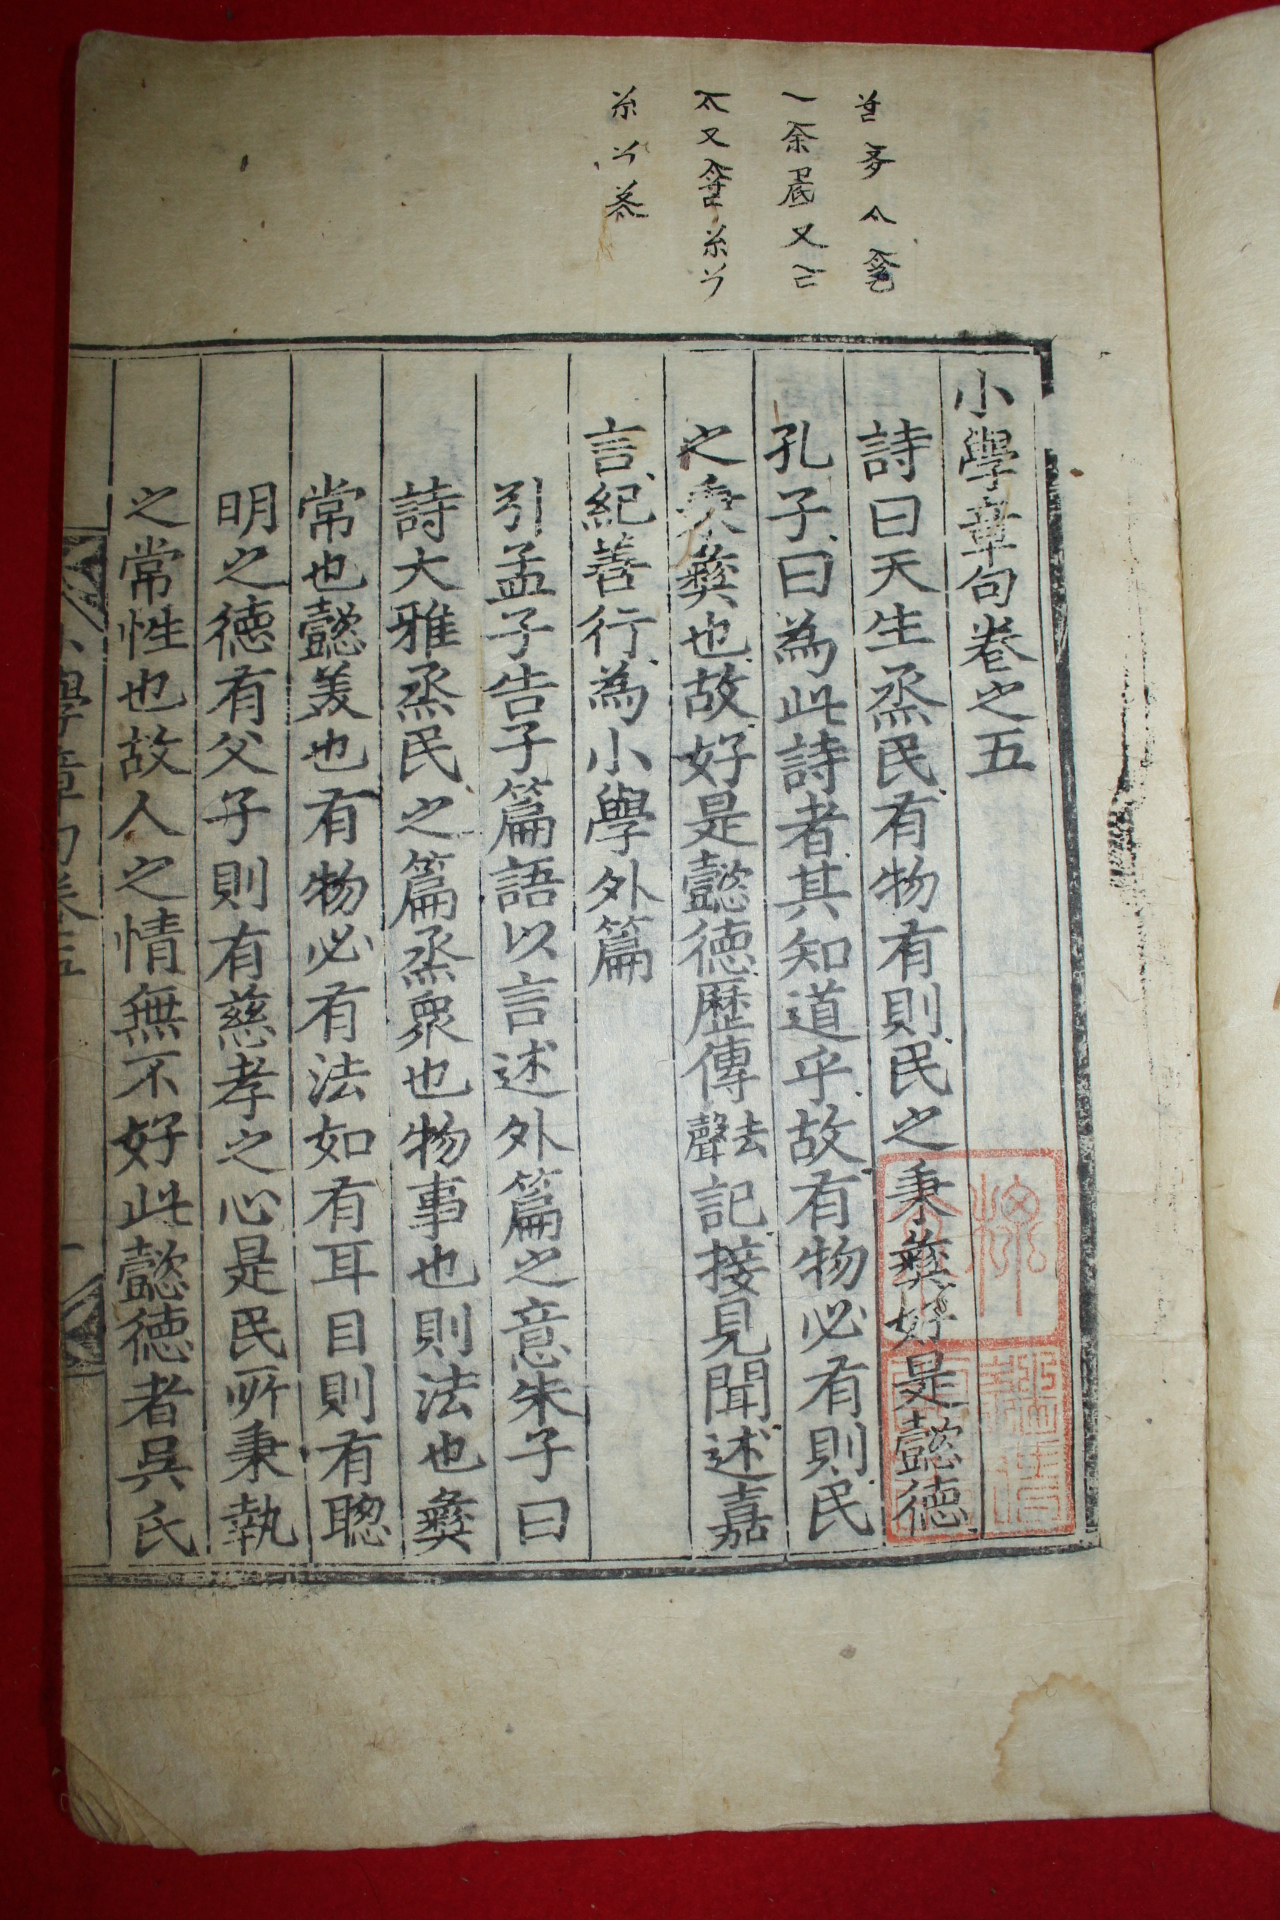 小學章句卷之五
詩曰天生烝民有物有則民之秉彝好是懿德
孔子曰為此詩者其知道乎故有物必有則民
之秉彝也故好是懿德歷傳去聲記接見聞述嘉
言紀善行為小學外篇
引孟子告子篇語以言述外篇之意朱子曰
詩大雅烝民之篇烝衆也物事也則法也彝
常也懿美也有物必有法如有耳目則有聰
明之德有父子則有慈孝之心是民所秉執
之常性也故人之情無不好此懿德者吳氏
小學章句卷五 一